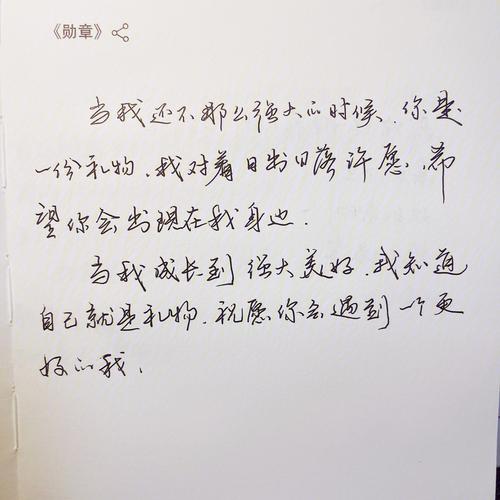 《勋章》
当我还不那么强大的时候，你是
一份礼物，我对着日出日落许愿，希
望你会出现在我身边.
当我成长到强大美好，我知道
自己就是礼物，祝愿你会遇到一个更
好的我，